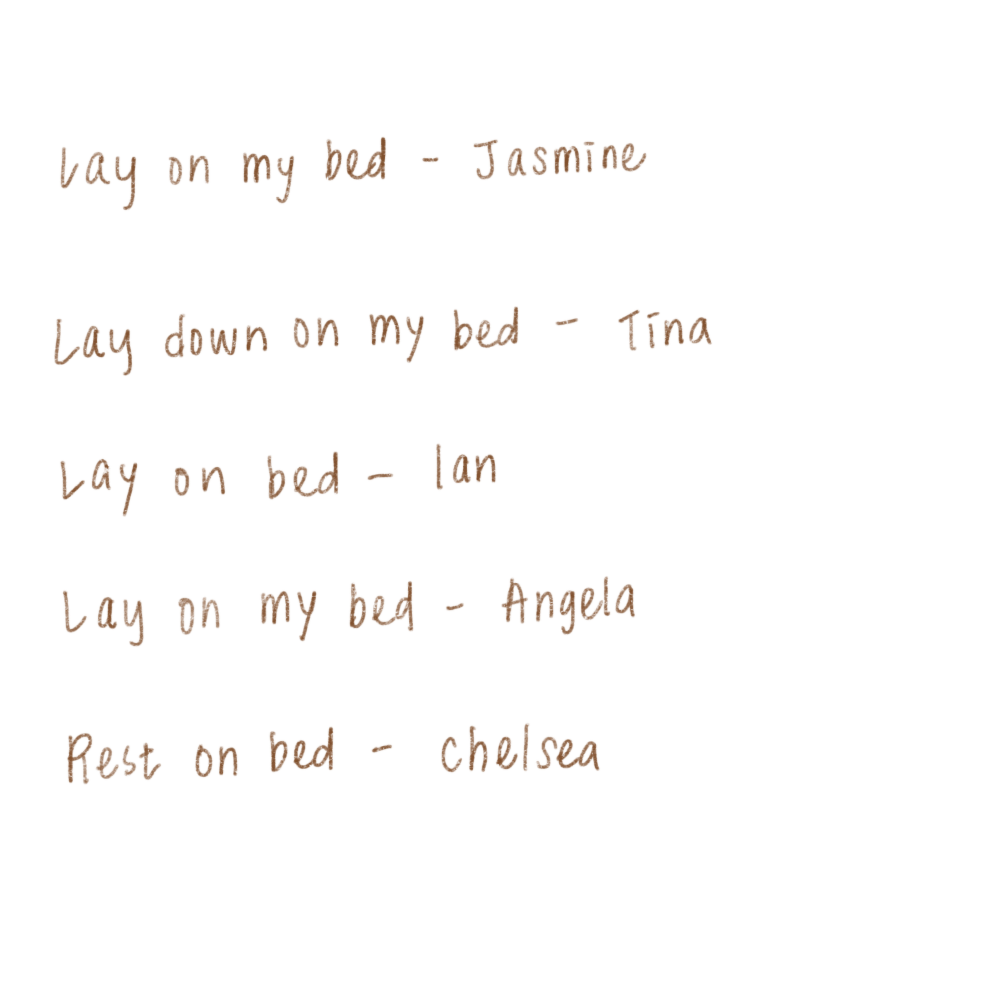 Lay on my bed - Jasmine
Lay down on my bed - Tina
Lay on bed - Ian
Lay on my bed - Angela
Rest on bed - Chelsea